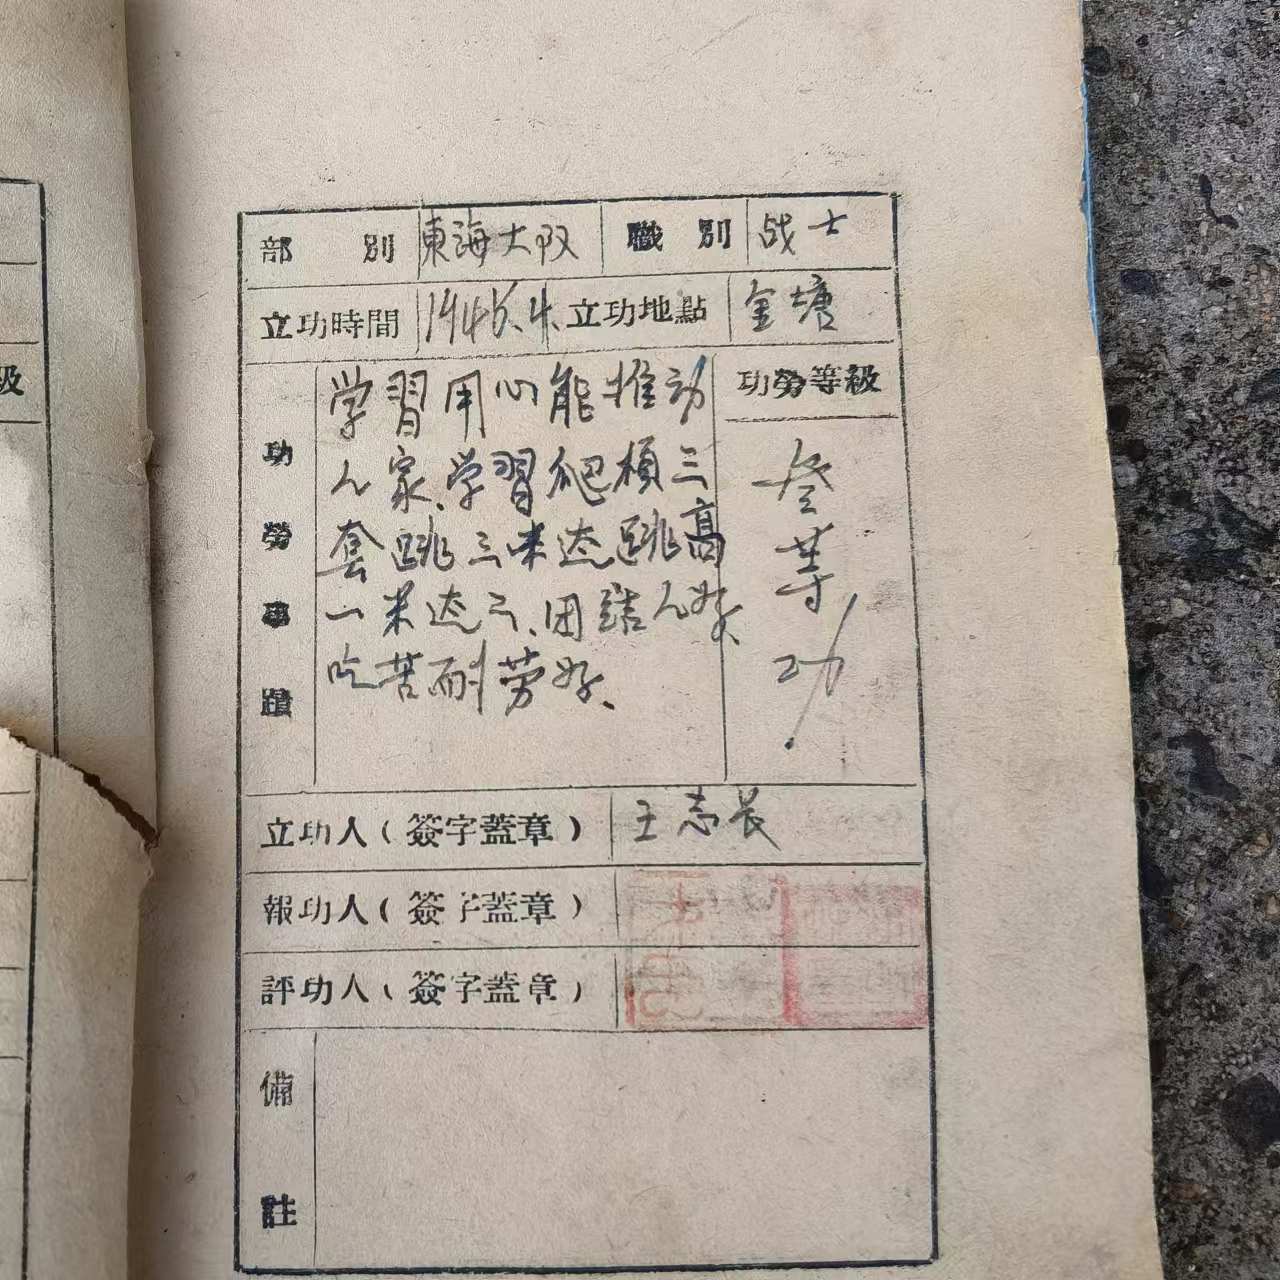 級
部別 東海大队 職別 战士
立功時間 1946.4. 立功地點 金塘
功勞事蹟
学習用心能推动
人家、学習爬槓三
套跳三米达跳高
一米达三、团結人好、
吃苦耐劳好、
功勞等級
叁等功
立功人(簽字蓋章) 王志长
報功人(簽字蓋章)
評功人(簽字蓋章)
備註